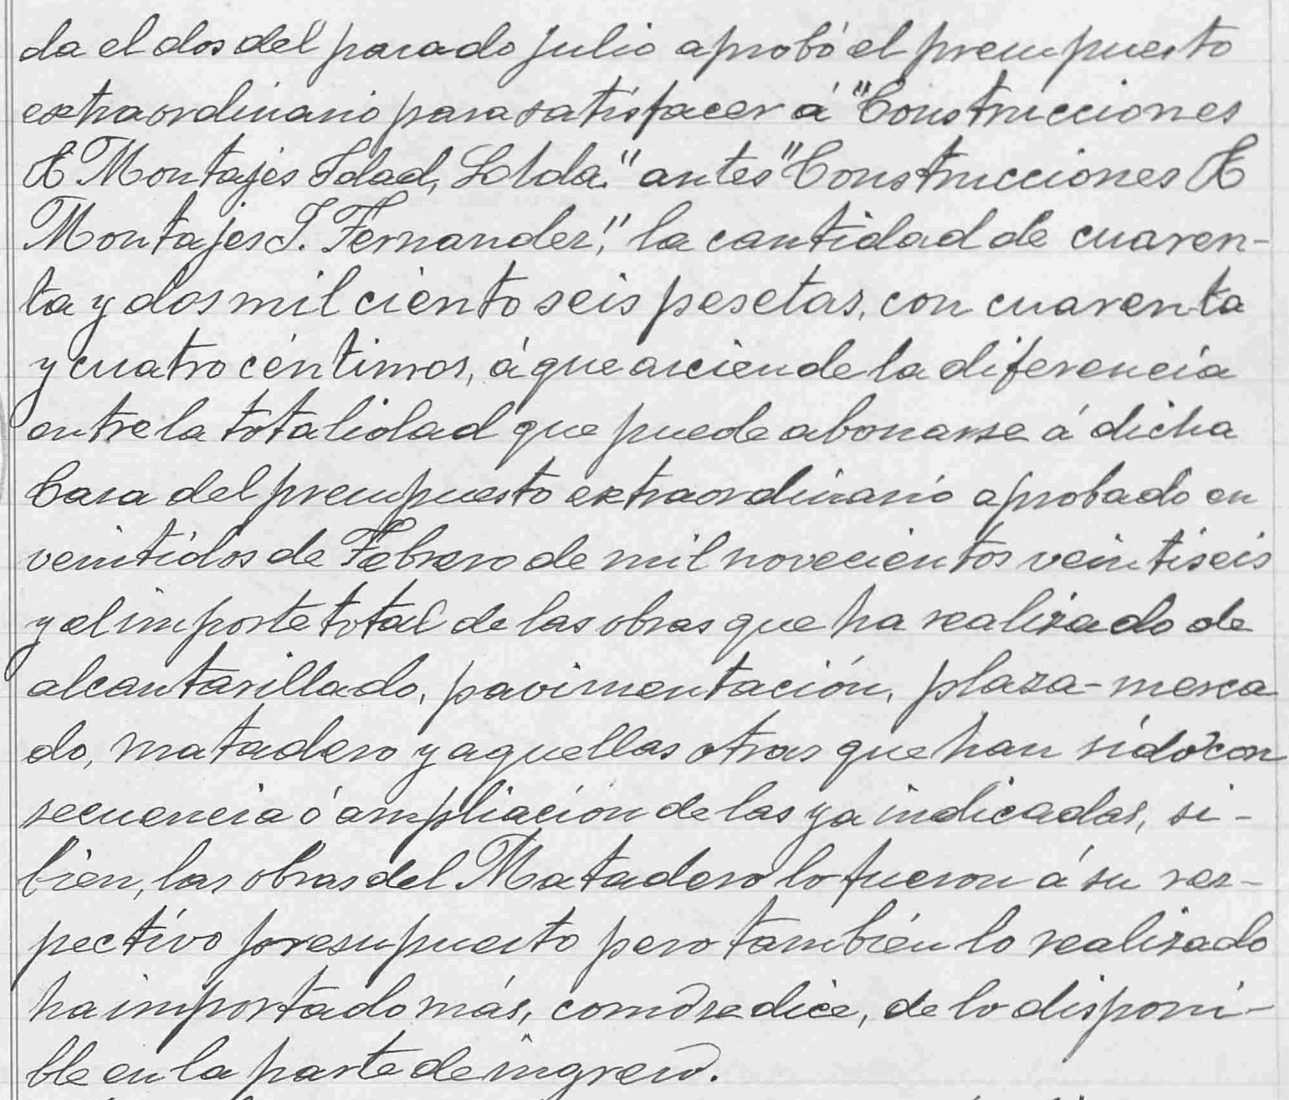 da el dos del pasado julio aprobó el presupuesto
extraordinario para satisfacer á "Construcciones
& Montajes Sdad, Ltda." antes "Construcciones &
Montajes J. Fernandez," la cantidad de cuaren-
ta y dos mil ciento seis pesetas, con cuarenta
y cuatro céntimos, á que asciende la diferencia
entre la totalidad que puede abonarse á dicha
Casa del presupuesto extraordinario aprobado en
veintidos de Febrero de mil novecientos veintiseis
y el importe total de las obras que ha realizado de
alcantarillado, pavimentación, plaza-merca
do, matadero y aquellas otras que han sido con
secuencia ó ampliación de las ya indicadas, si-
bien, las obras del Matadero lo fueron á su res-
pectivo presupuesto pero también lo realizado
ha importado más, como se dice, de lo disponi-
ble en la parte de ingreso.